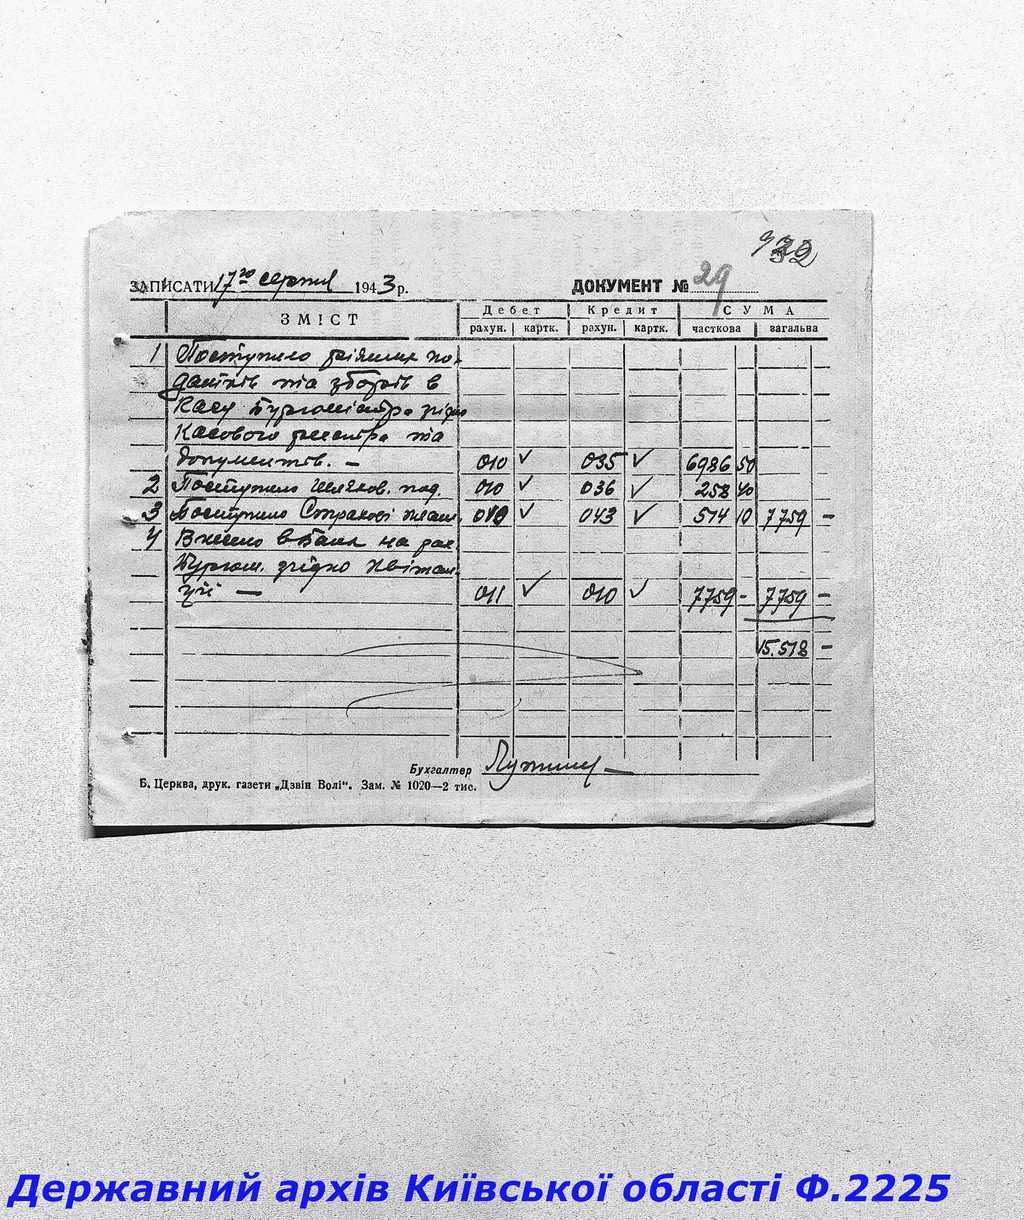 ЗАПИСАТИ 17го серпня 1943 р. ДОКУМЕНТ № 29
ЗМІСТ Дебет Кредит СУМА
рахун. картк. рахун. картк. часткова загальна
1 Поступило ріжних по-
датків та зборів в
Касу Бургомістра згідно
Касового реєстра та
документів. — 010 ✓ 035 ✓ 6986 50
2 Поступило Шляхов. под. 010 ✓ 036 ✓ 258 40
3 Поступило Страхові 010 ✓ 043 ✓ 514 10 7759 —
4 Внесено в Банк на рах.
Бургом. згідно квітан-
ції — 011 ✓ 010 ✓ 7759 - 7759 —
15.518 —
Бухгалтер
Б. Церква, друк. газети „Дзвін Волі“. Зам. № 1020—2 тис.
Державний архів Київської області Ф.2225